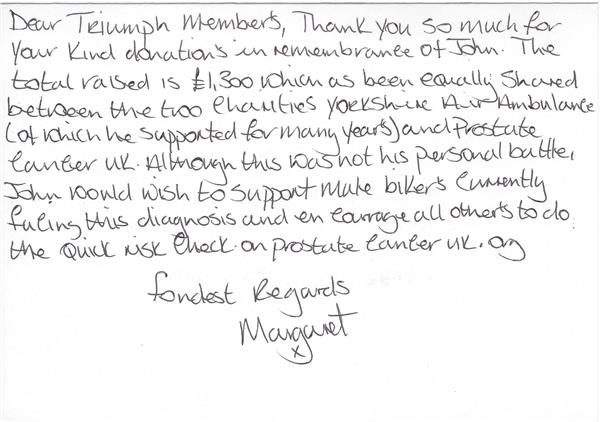 Dear Triumph Members, Thank you so much for
your kind donations in remembrance of John. The
total raised is £1,300 which as been equally shared
between the two Charities Yorkshire Air Ambulance
(of which he supported for many years) and Prostate
Cancer UK. Although this was not his personal battle,
John would wish to support male bikers currently
facing this diagnosis and en courage all others to do
the Quick risk check on prostate cancer uk. org
fondest Regards
Margaret
x